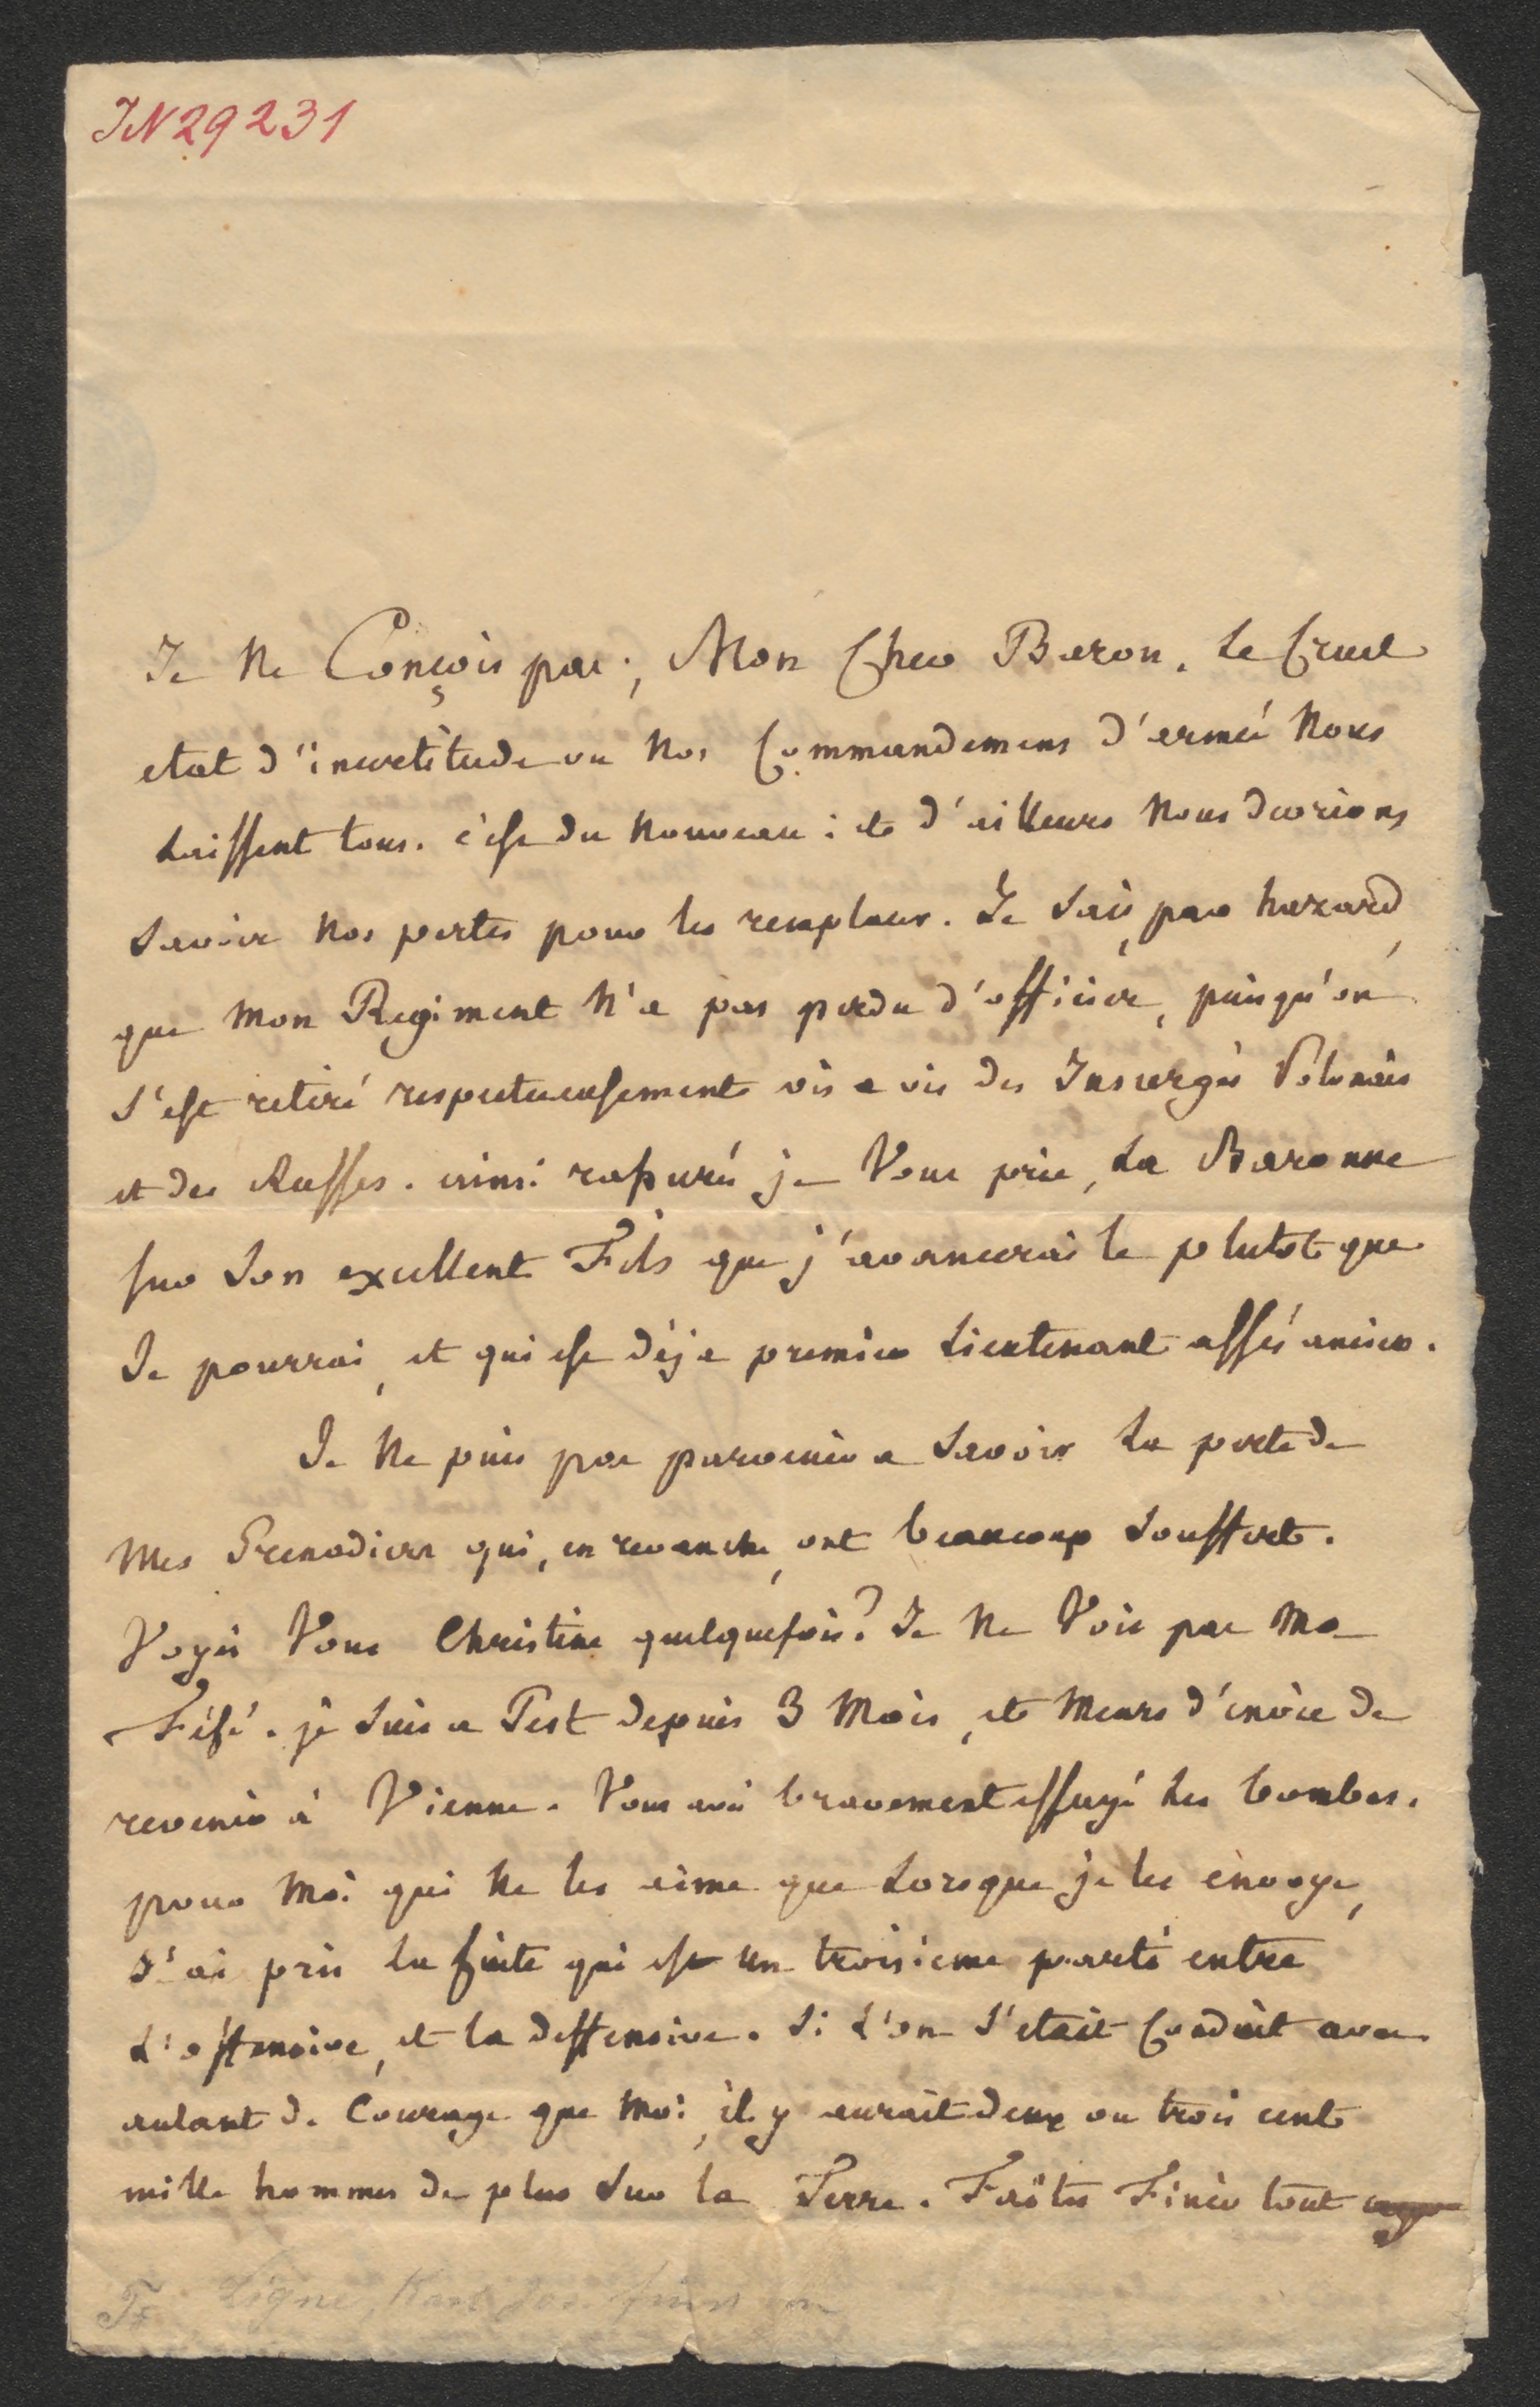 IN 29231
Je ne Conçois pas, Mon Cher Baron, le Cruel
etat d'incertitude ou nos Commandemens d'armée nous
laissent tous. c'est du nouveau : et d'ailleurs nous devrions
savoir nos pertes pour les remplacer. Je sais, par hazard,
que mon Regiment n'a pas perdu d'officier, puisqu'on
s'est retiré respectueusement vis a vis des Insurgés Polonais
et des Russes. ainsi rassurés je vous prie, la Baronne
sur son excellent Fils que j'avancerai le plutot que
Je pourrai, et qui est déja premier Lieutenant assés ancien.
Je ne puis pas parvenir a savoir la perte de
mes Grenadiers qui, en revanche, ont beaucoup souffert.
Voyés vous Christine quelquefois? Je ne vois pas ma
Féfé. je suis a Pest depuis 3 mois, et meurs d'envie de
revenir à Vienne. Vous avés bravement essuyé les bombes.
pour moi qui ne les aime que lorsque je les envoye,
J'ai pris la fuite qui est un troisieme parti entre
l'offensive, et la deffensive. Si l'on s'etait Conduit avec
autant de Courage que moi, il y aurait deux ou trois cent
mille hommes de plus sur la Terre. Faites Finir tout
Ligne, Karl